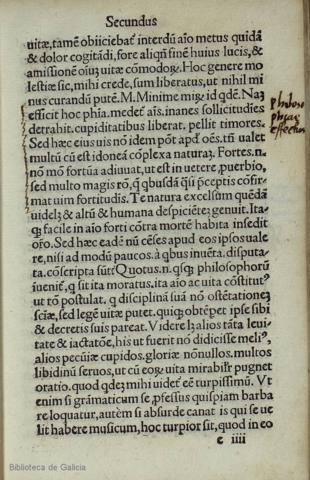 Secundus
uitæ, tamẽ obiiciebat̃ interdũ aĩo metus quidã
& dolor cogitãdi, fore aliqñ finẽ huius lucis, &
amissionẽ oiũ uitæ cõmodoꝝ. Hoc genere mo
lestiæ sic, mihi crede, sum liberatus, ut nihil mi
nus curandũ putẽ. M. Minime mirũ id qdẽ. Nã
efficit hoc phĩa. medet̃ aĩs. inanes sollicitudies
detrahit. cupiditatibus liberat. pellit timores.
Sed hæc eius uis nõ idem põt apḋ oẽs. tñ ualet
multũ cũ est idoneã cõplexa naturaz. Fortes. n.
nõ mõ fortũa adiuuat, ut est in uetere ꝓuerbio,
sed multo magis rõ, q̃ quibusdã quasi p̃ceptis cõfir
mat uim fortitudis. Te natura excelsum quẽdã
uidelz & altũ & humana despiciẽtẽ genuit. Ita-
qꝫ facile in aĩo forti cõtra mortẽ habita insedit
oĩo. Sed hæc eadẽ nũ cẽses apud eos ipsos uale
re, nisi ad modũ paucos. à qbus inuẽta. disputa-
ta. cõscripta sũt? Quotus. n. qsqꝫ philosophorũ
iuenit̃, q sit ita moratus. ita aĩo ac uita cõstitut9
ut rõ postulat. q disciplinã suã nõ ostẽtationẽ
sciæ, sed legẽ uitæ putet. quiqꝫ obtẽpet ipse sibi
& decretis suis pareat. Videre lz alios tãta leui/
tate & iactatõe, his ut fuerit nõ didicisse meli9,
alios pecũiæ cupidos. gloriæ nõnullos. multos
libidinũ seruos, ut cũ eoꝝ uita mirabilr̃ pugnet
oratio. quod qdez mihi uidet̃ eẽ turpissimũ. Vt
enim si grãmaticum se ꝓfessus quispiam barba
re loquatur, aut ẽm si absurde canat is qui se ue
lit habere musicum, hoc turpior sit, quod in eo
e iiii
philoso
phiæ
effectus
Biblioteca de Galicia